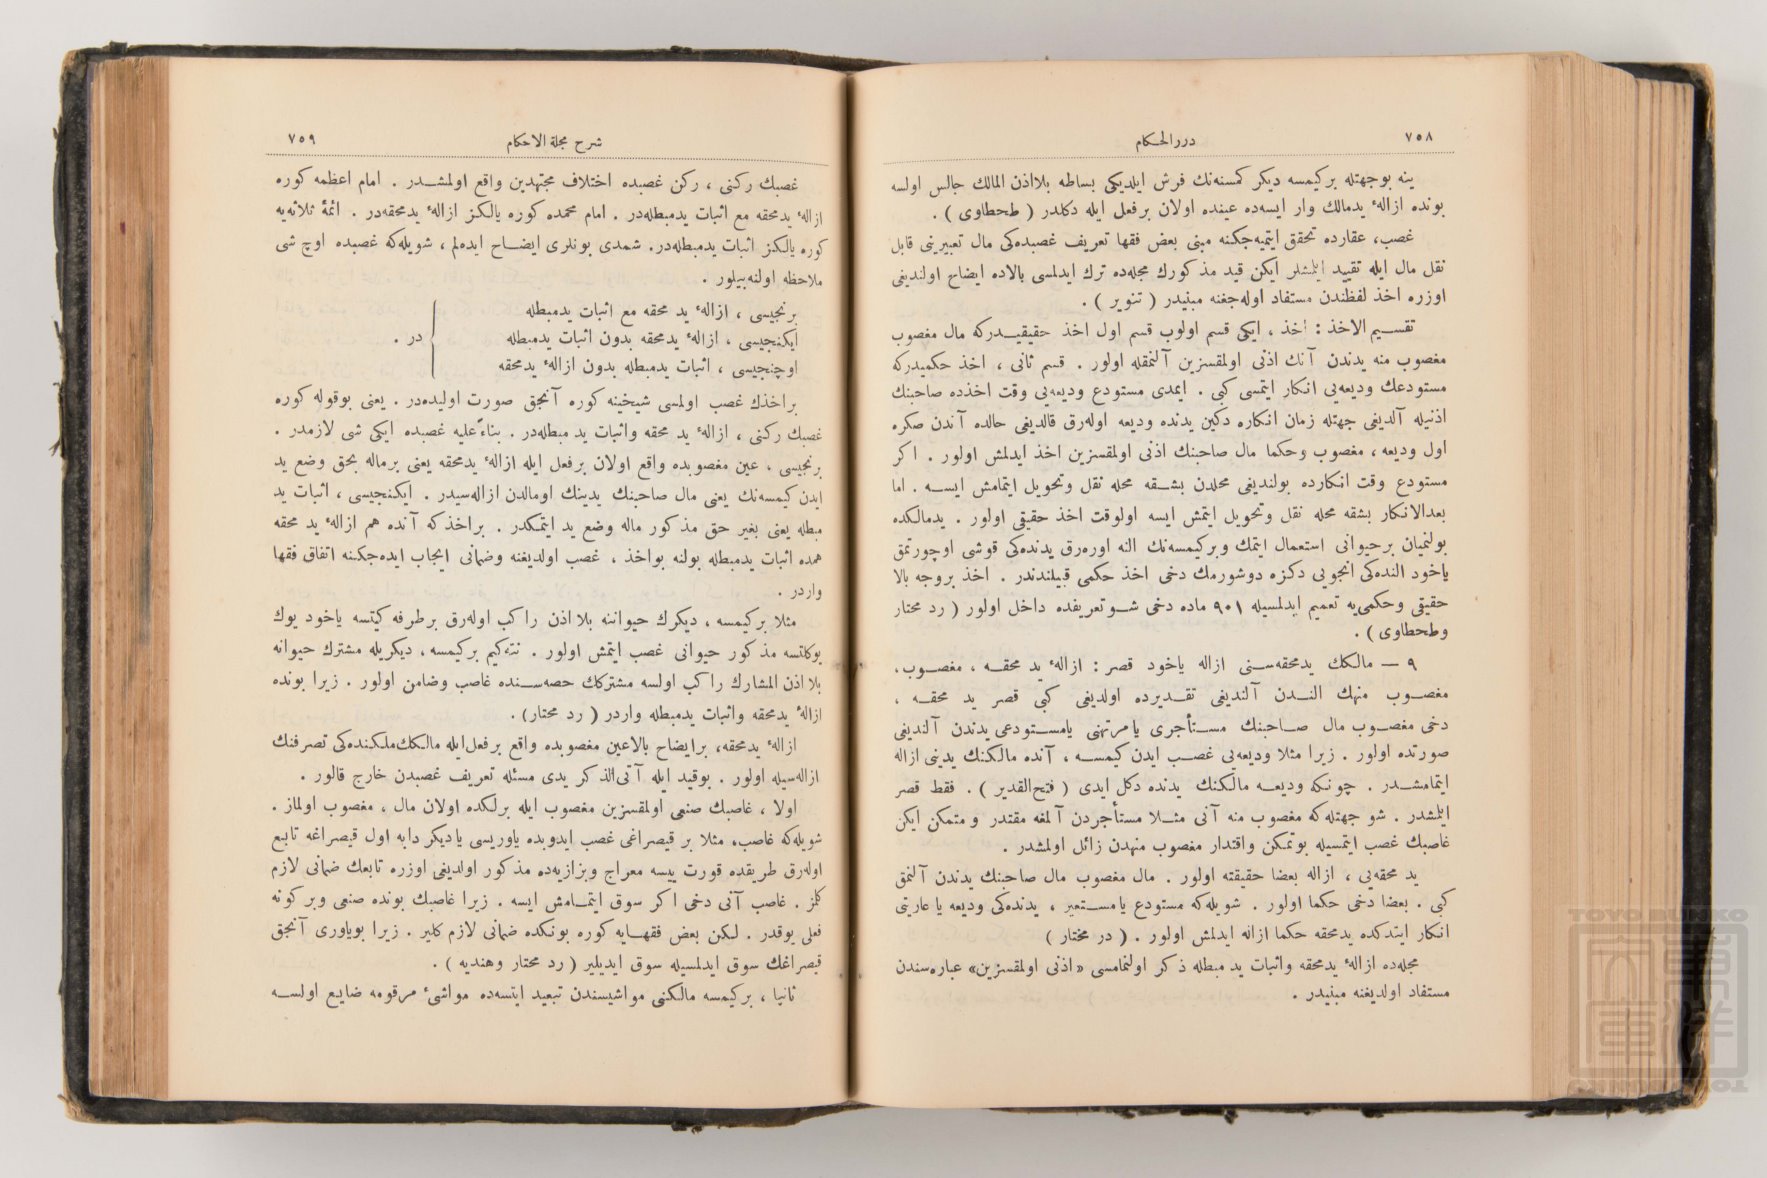 ٧٥٨
دررالحكام
ينه بوجهتله بركيمسه ديكر كمسنه‌نك فرش ايلديكى بساطه بلااذن المالك جالس اولسه
بونده ازالهٔ يدمالك وار ايسه‌ده عينده اولان برفعل ايله دكلدر ( طحطاوى ) .
غصب، عقارده تحقق ايتميه‌جكنه مبنى بعض فقها تعريف غصبده‌كى مال تعبيرينى قابل
نقل مال ايله تقييد ايلمشلر ايكن قيد مذكورك مجله‌ده ترك ايدلمسى بالاده ايضاح اولنديغى
اوزره اخذ لفظندن مستفاد اوله‌جغنه مبنيدر ( تنوير ) .
تقسيم الاخذ : اخذ ، ايكى قسم اولوب قسم اول اخذ حقيقيدركه مال مغصوب
مغصوب منه يدندن آنك اذنى اولمقسزين آلنمقله اولور . قسم ثانى ، اخذ حكميدركه
مستودعك وديعه‌يى انكار ايتمسى كبى . ايمدى مستودع وديعه‌يى وقت اخذده صاحبنك
اذنيله آلديغى جهتله زمان انكاره دكين يدنده وديعه اوله‌رق قالديغى حالده آندن صكره
اول وديعه ، مغصوب وحكما مال صاحبنك اذنى اولمقسزين اخذ ايدلمش اولور . اكر
مستودع وقت انكارده بولنديغى محلدن بشقه محله نقل وتحويل ايتمامش ايسه . اما
بعدالانكار بشقه محله نقل وتحويل ايتمش ايسه اولوقت اخذ حقيقى اولور . يدمالكده
بولنميان برحيوانى استعمال ايتمك وبركيمسه‌نك النه اوره‌رق يدنده‌كى قوشى اوچورتمق
ياخود النده‌كى انجويى دكزه دوشورمك دخى اخذ حكمى قبيلندندر . اخذ بروجه بالا
حقيقى وحكمى‌يه تعميم ايدلمسيله ٩٠١ ماده دخى شو تعريفده داخل اولور ( رد محتار
وطحطاوى ) .
٩ — مالكك يدمحقه‌سنى ازاله ياخود قصر : ازالهٔ يد محقه ، مغصوب،
مغصوب منهك الندن آلنديغى تقديرده اولديغى كبى قصر يد محقه ،
دخى مغصوب مال صاحبنك مستأجرى يامرتهنى يامستودعى يدندن آلنديغى
صورتده اولور . زيرا مثلا وديعه‌يى غصب ايدن كيمسه ، آنده مالكنك يدينى ازاله
ايتمامشدر . چونكه وديعه مالكنك يدنده دكل ايدى ( فتح‌القدير ) . فقط قصر
ايلمشدر . شو جهتله‌كه مغصوب منه آنى مثلا مستأجردن آلمغه مقتدر و متمكن ايكن
غاصبك غصب ايتمسيله بوتمكن واقتدار مغصوب منهدن زائل اولمشدر .
يد محقه‌يى ، ازاله بعضا حقيقته اولور . مال مغصوب مال صاحبنك يدندن آلنمق
كبى . بعضا دخى حكما اولور . شويله‌كه مستودع يامستعير ، يدنده‌كى وديعه ياعاريتى
انكار ايتدكده يدمحقه حكما ازاله ايدلمش اولور . ( در مختار )
مجله‌ده ازالهٔ يدمحقه واثبات يد مبطله ذكر اولنمامسى «اذنى اولمقسزين» عباره‌سندن
مستفاد اولديغنه مبنيدر .
شرح مجلة الاحكام
٧٥٩
غصبك ركنى ، ركن غصبده اختلاف مجتهدين واقع اولمشدر . امام اعظمه كوره
ازالهٔ يدمحقه مع اثبات يدمبطله‌در . امام محمده كوره يالكز ازالهٔ يدمحقه‌در . ائمهٔ ثلاثه‌يه
كوره يالكز اثبات يدمبطله‌در. شمدى بونلرى ايضاح ايده‌لم ، شويله‌كه غصبده اوچ شى
ملاحظه اولنه‌بيلور .
برنجيسى ، ازالهٔ يد محقه مع اثبات يدمبطله
ايكنجيسى ، ازالهٔ يدمحقه بدون اثبات يدمبطله
اوچنجيسى ، اثبات يدمبطله بدون ازالهٔ يدمحقه
در .
براخذك غصب اولمسى شيخينه كوره آنجق صورت اوليده‌در . يعنى بوقوله كوره
غصبك ركنى ، ازالهٔ يد محقه واثبات يد مبطله‌در . بناءً عليه غصبده ايكى شى لازمدر .
برنجيسى ، عين مغصوبده واقع اولان برفعل ايله ازالهٔ يدمحقه يعنى برماله بحق وضع يد
ايدن كيمسه‌نك يعنى مال صاحبنك يدينك اومالدن ازاله‌سيدر . ايكنجيسى ، اثبات يد
مبطله يعنى بغير حق مذكور ماله وضع يد ايتمكدر . براخذكه آنده هم ازالهٔ يد محقه
همده اثبات يدمبطله بولنه بواخذ ، غصب اولديغنه وضمانى ايجاب ايده‌جكنه اتفاق فقها
واردر .
مثلا بركيمسه ، ديكرك حيواننه بلا اذن راكب اوله‌رق برطرفه كيتسه ياخود يوك
يوكلتسه مذكور حيوانى غصب ايتمش اولور . نته‌كيم بركيمسه ، ديكريله مشترك حيوانه
بلا اذن المشارك راكب اولسه مشتركك حصه‌سنده غاصب وضامن اولور . زيرا بونده
ازالهٔ يدمحقه واثبات يدمبطله واردر ( رد محتار) .
ازالهٔ يدمحقه، برايضاح بالاعين مغصوبده واقع برفعل‌ايله مالكك ملكنده‌كى تصرفنك
ازاله‌سيله اولور . بوقيد ايله آتى‌الذكر يدى مسئله تعريف غصبدن خارج قالور .
اولا ، غاصبك صنعى اولمقسزين مغصوب ايله برلكده اولان مال ، مغصوب اولماز .
شويله‌كه غاصب، مثلا بر قيصراغى غصب ايدوبده ياوريسى ياديكر دابه اول قيصراغه تابع
اوله‌رق طريقده قورت ييسه معراج وبزازيه‌ده مذكور اولديغى اوزره تابعك ضمانى لازم
كلمز . غاصب آنى دخى اكر سوق ايتمامش ايسه . زيرا غاصبك بونده صنعى وبر كونه
فعلى يوقدر . لكن بعض فقهايه كوره بونكده ضمانى لازم كلير . زيرا بوياورى آنجق
قيصراغك سوق ايدلمسيله سوق ايديلير ( رد محتار وهنديه ) .
ثانيا ، بركيمسه مالكنى مواشيسندن تبعيد ايتسه‌ده مواشىٔ مرقومه ضايع اولسه
TOYO BUNKO